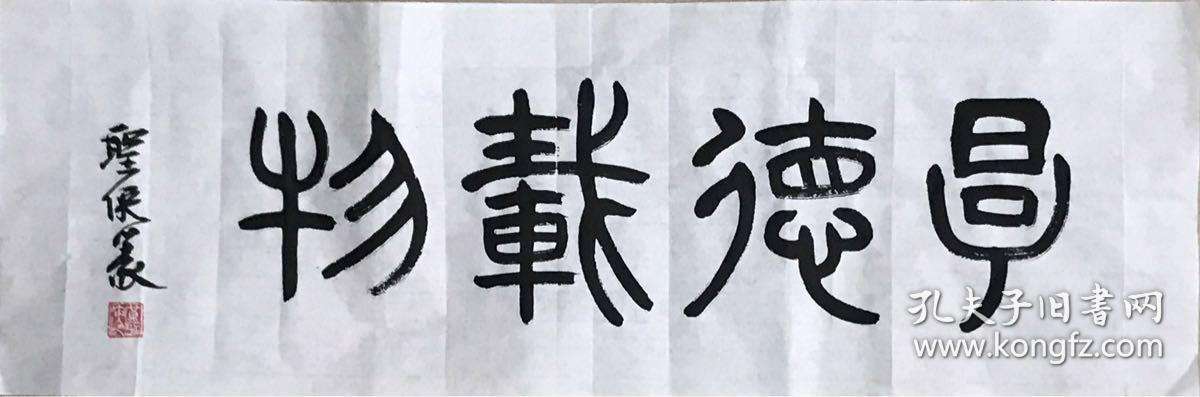 㫗德載物
聖保篆
孔夫子旧書网
www.kongfz.com